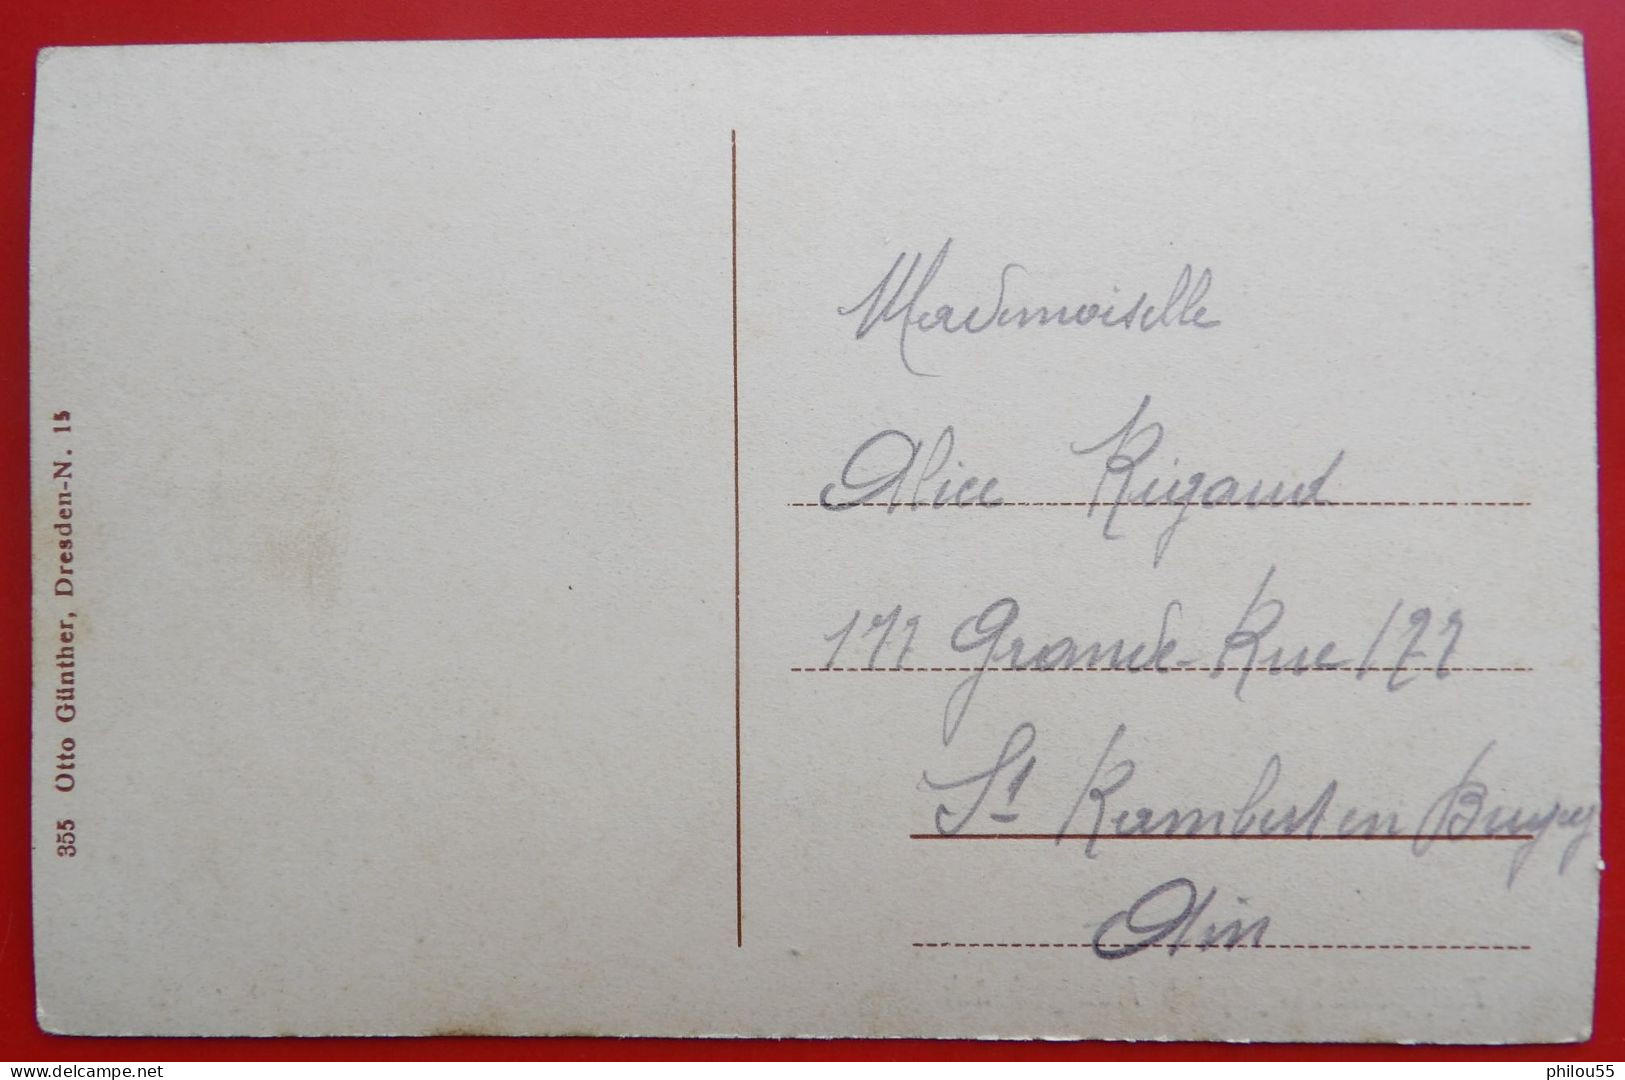 355 Otto Günther, Dresden-N. 15
Mademoiselle
Alice Rigaud
177 Grande-Rue 177
St Rambert en Bugey
Ain
delcampe.net
philou55